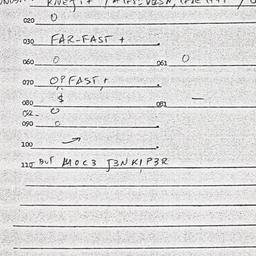 020 0
030 FAR-FAST +
060 0 061 0
070 OPFAST +
080 $ 081 —
082 0
090 0
100
115 BUT MOC3 J3NKIP3R